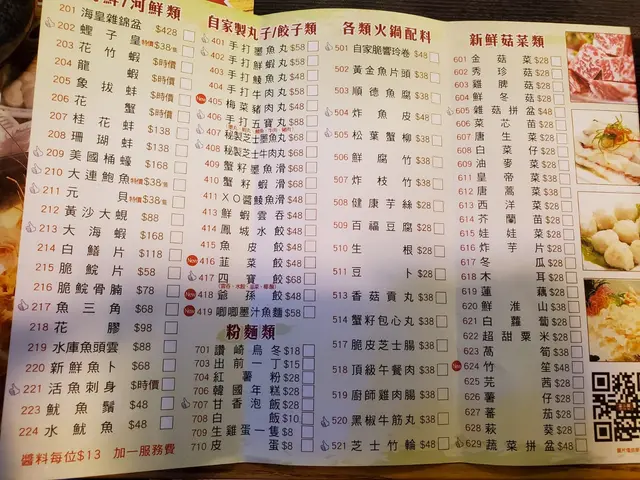 海鮮/河鮮類
201 海皇雜錦盆 $428
202 蟶子皇 特價$38/隻
203 花竹蝦 $時價
204 龍蝦 $時價
205 象拔蚌 $時價
206 花蟹 $時價
207 桂花蚌 $138
208 珊瑚蚌 $138
209 美國桶蠔 $168
210 大連鮑魚 特價$38/隻
211 元貝 特價$38/隻
212 黃沙大蜆 $88
213 大海蝦 $168
214 白鱔片 $118
215 脆鯇片 $58
216 脆鯇骨腩 $78
217 魚三角 $68
218 花膠 $98
219 水庫魚頭雲 $88
220 新鮮魚卜 $68
221 活魚刺身 $時價
223 魷魚鬚 $48
224 水魷魚 $48
醬料每位$13 加一服務費
自家製丸子/餃子類
401 手打墨魚丸 $58
402 手打鮮蝦丸 $58
403 手打鯪魚丸 $58
404 手打牛肉丸 $58
New 405 梅菜豬肉丸 $58
406 手打五寶丸 $58
407 秘製芝士墨魚丸 $68
408 秘製芝士牛肉丸 $68
409 蟹籽墨魚滑 $68
410 蟹籽蝦滑 $68
411 XO醬鯪魚滑 $48
413 鮮蝦雲吞 $48
414 鳳城水餃 $48
415 魚皮餃 $48
New 416 韮菜餃 $48
417 四寶餃 $68
New 418 爺孫餃 $48
New 419 唧唧墨汁魚麵 $58
粉麵類
701 讚崎烏冬 $18
703 出前一丁 $15
704 紅薯粉 $28
706 韓國年糕 $28
707 甘香泡飯 $28
708 白飯 $10
709 生雞蛋一隻 $8
710 皮蛋 $8
各類火鍋配料
501 自家脆響玲卷 $48
502 黃金魚片頭 $38
503 順德魚腐 $38
504 炸魚皮 $48
505 松葉蟹柳 $38
506 鮮腐竹 $38
507 炸枝竹 $38
508 健康芋絲 $28
509 百福豆腐 $28
510 生根 $28
511 豆卜 $28
513 香菇貢丸 $38
514 蟹籽包心丸 $38
517 脆皮芝士腸 $38
518 頂級午餐肉 $38
519 廚師雞肉腸 $38
520 黑椒牛筋丸 $38
521 芝士竹輪 $48
新鮮菇菜類
601 金菇菜 $28
602 秀珍菇 $28
603 雞脾菇 $28
604 鮮冬菇 $28
605 雜菇拼盆 $48
606 菜芯苗 $28
607 唐生菜 $28
608 白菜仔 $28
609 油麥菜 $28
611 皇帝菜 $38
612 唐蒿菜 $38
613 西洋菜 $28
614 芥蘭苗 $28
615 娃娃菜 $28
616 炸芋片 $38
617 冬瓜 $28
618 木耳 $28
619 蓮藕 $28
620 鮮淮山 $38
621 白蘿蔔 $28
622 超甜粟米 $28
623 萵筍 $28
New 624 竹笙 $38
625 芫茜 $28
626 薯仔 $28
627 蕃茄 $28
628 萩葵 $28
629 蔬菜拼盆 $48